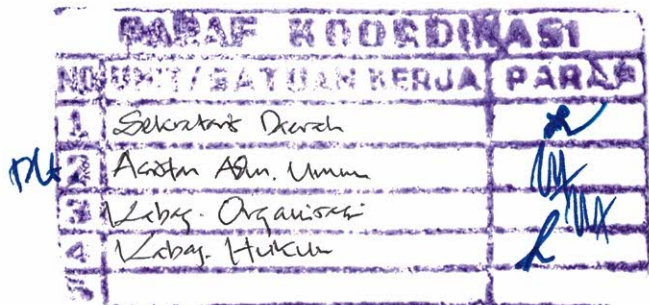 PARAF KOORDINASI
NO UNIT/SATUAN KERJA PARAF
1 Sekretaris Daerah
Plt 2 Asisten Adm. Umum
3 Kabag. Organisasi
4 Kabag. Hukum
5